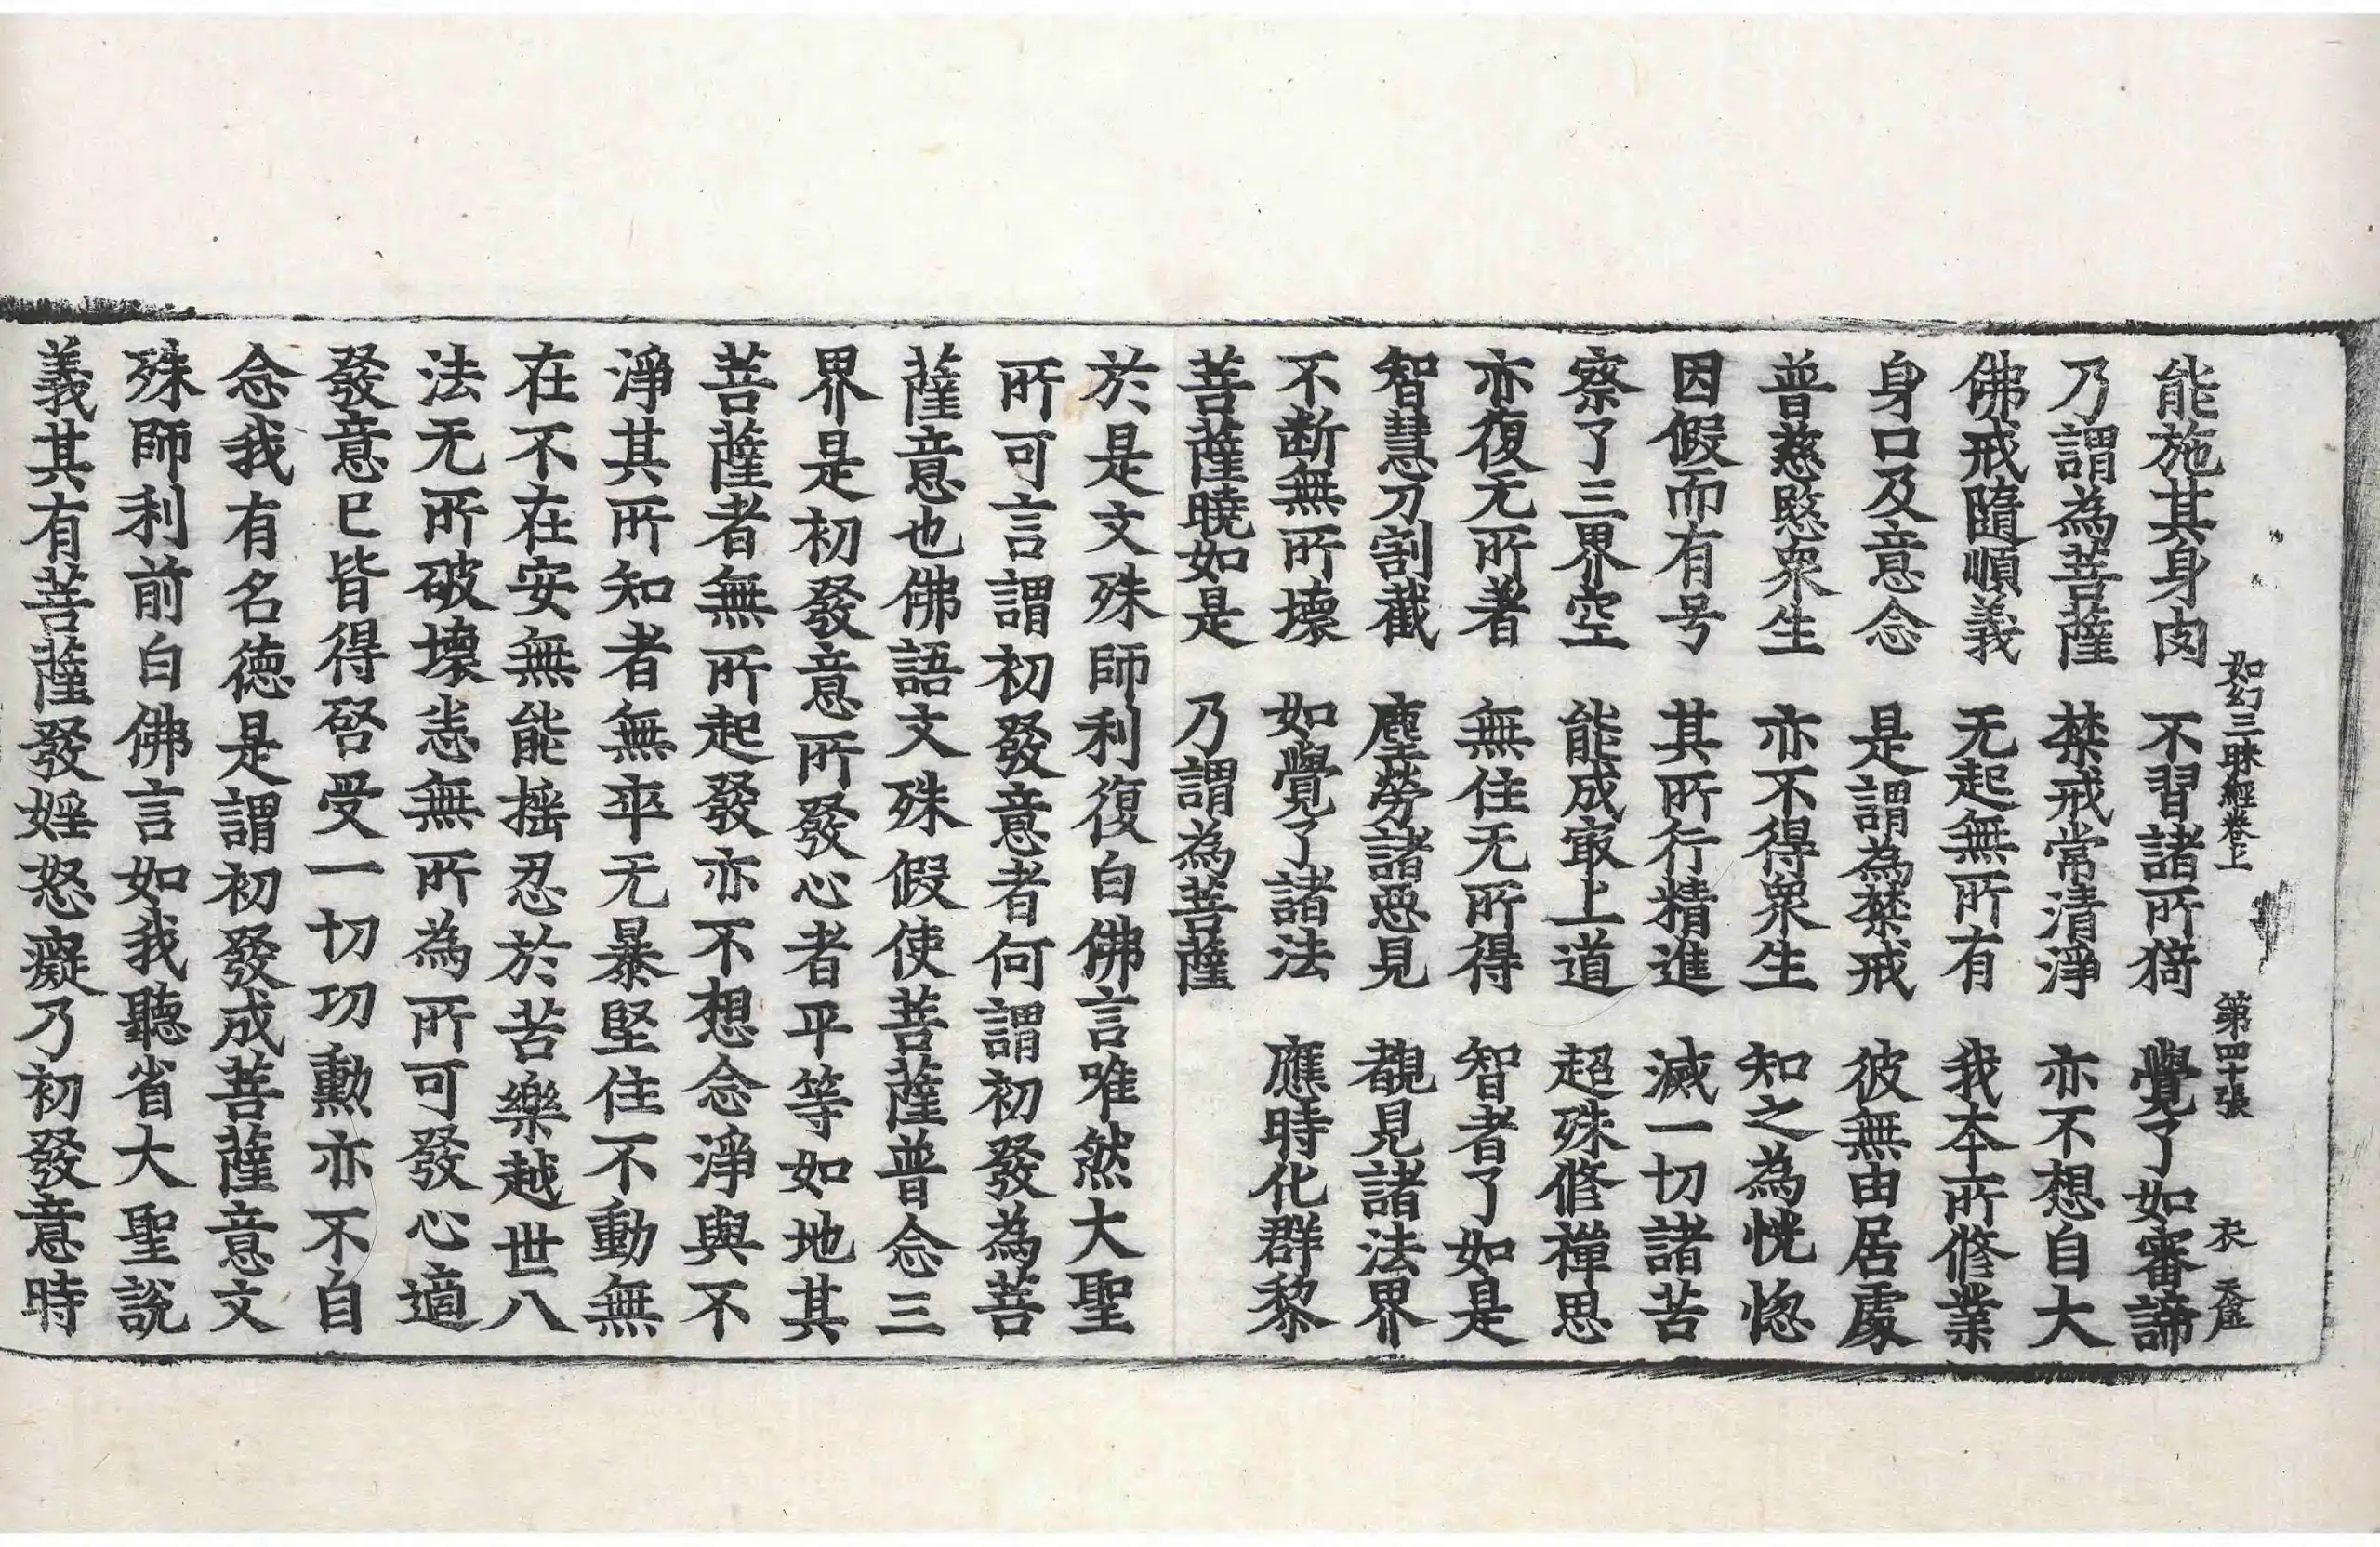 如幻三昧經卷上　第四十張　衣　天佺
能施其身肉　不習諸所猗　覺了如審諦
乃謂為菩薩　禁戒常清淨　亦不想自大
佛戒隨順義　无起無所有　我夲所修業
身口及意念　是謂為禁戒　彼無由居處
普慈愍衆生　亦不得衆生　知之為恍惚
因假而有号　其所行精進　滅一切諸苦
察了三界空　能成㝡上道　超殊修禪思
亦復无所著　無住无所得　智者了如是
智慧刀割截　塵勞諸惡見　覩見諸法界
不断無所壞　如覺了諸法　應時化群黎
菩薩曉如是　乃謂為菩薩
於是文殊師利復白佛言唯然大聖
所可言謂初發意者何謂初發為菩
薩意也佛語文殊假使菩薩普念三
界是初發意所發心者平等如地其
菩薩者無所起發亦不想念淨與不
淨其所知者無卒无暴堅住不動無
在不在安無能揺忍於苦樂越世八
法无所破壞恚無所為所可發心適
發意已皆得啓受一切功勳亦不自
念我有名德是謂初發成菩薩意文
殊師利前白佛言如我聽省大聖說
義其有菩薩發婬怒癡乃初發意時